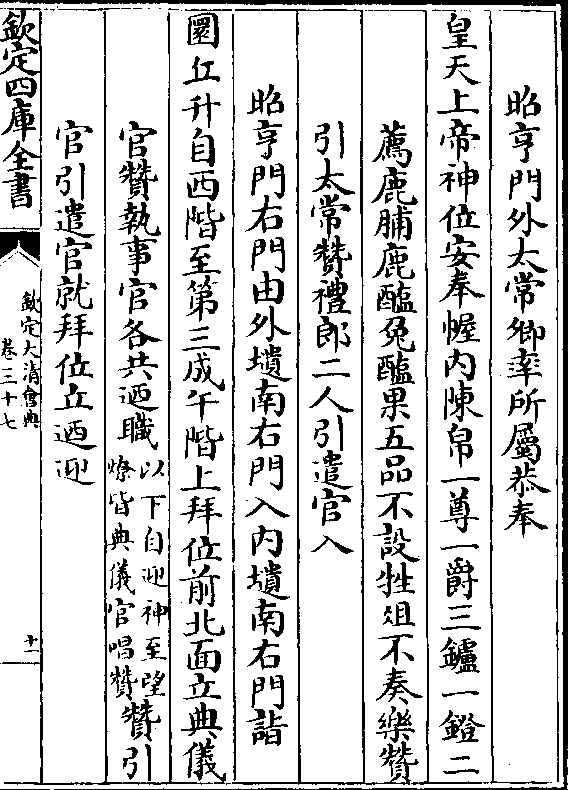 昭亨門外太常卿率所屬恭奉
皇天上帝神位安奉幄内陳帛一尊一爵三鑪一鐙二
薦鹿脯鹿醢兔醢果五品不設牲俎不奏樂贊
引太常贊禮郎二人引遣官入
昭亨門右門由外壝南右門入内壝南右門詣
圜丘升自西階至第三成午階上拜位前北面立典儀
官贊執事官各共迺職以下自迎神至望燎皆典儀官唱贊贊引
官引遣官就拜位立迺迎
欽定四庫全書
欽定大清會典
卷三十七
十一